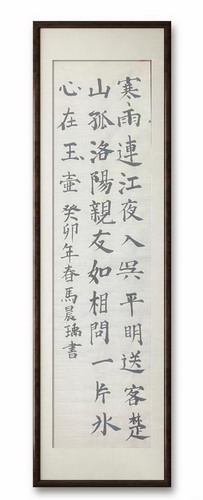 寒雨連江夜入吳平明送客楚
山孤洛陽親友如相問一片冰
心在玉壺癸卯年春馬晨瑀書